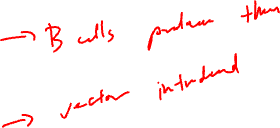 → B cells produce them
→ vector introduced